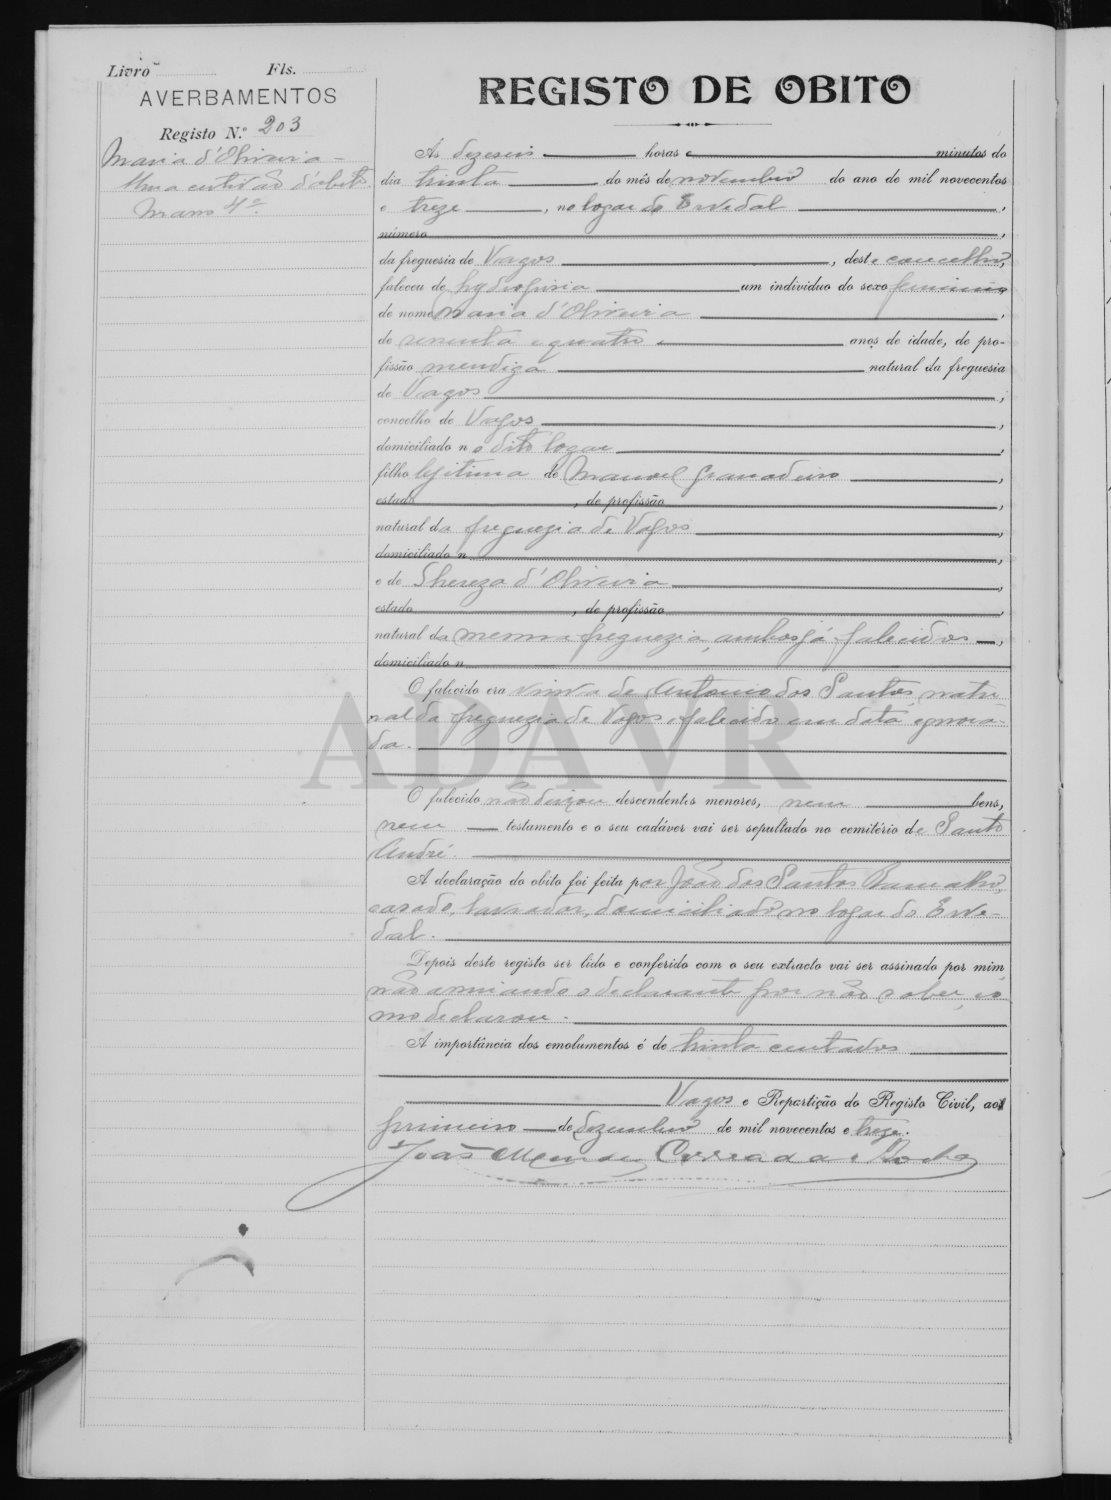 Livro Fls.
AVERBAMENTOS
Registo N.º 203
Maria d'Oliveira -
Uma certidão d'obito.
Março 4º.
REGISTO DE OBITO
Ás dezeseis horas e minutos do
dia trinta do mês de novembro do ano de mil novecentos
e treze, no logar do Ervedal,
número,
da freguesia de Vagos, deste concelho,
faleceu de hydropisia um individuo do sexo feminino
de nome Maria d'Oliveira,
de e quatro anos de idade, de pro-
fissão mendiga natural da freguesia
de Vagos;
concelho de Vagos,
domiciliado no dito logar,
filho legitima de Manoel Granadeiro,
estado, de profissão,
natural da freguezia de Vagos,
domiciliado n,
e de Thereza d'Oliveira,
estado, de profissão,
natural da mesma freguezia, ambos já falecidos,
domiciliado n
O falecido era viuva de Antonio dos Santos, natu-
ral da freguezia de Vagos, falecido em data ignora-
da.
ADAVR
O falecido não deixou descendentes menores, nem bens,
nem testamento e o seu cadáver vai ser sepultado no cemitério de Santo
André.
A declaração do obito foi feita por João dos Santos Ramalho,
casado, lavrador, domiciliado no logar do Erve-
dal.
Depois deste registo ser lido e conferido com o seu extracto vai ser assinado por mim
não assinando o declarante por não saber, co-
mo declarou.
A importância dos emolumentos é de trinta centavos
Vagos e Repartição do Registo Civil, aos
primeiro de dezembro de mil novecentos e treze.
João Mendes Correia da Rocha